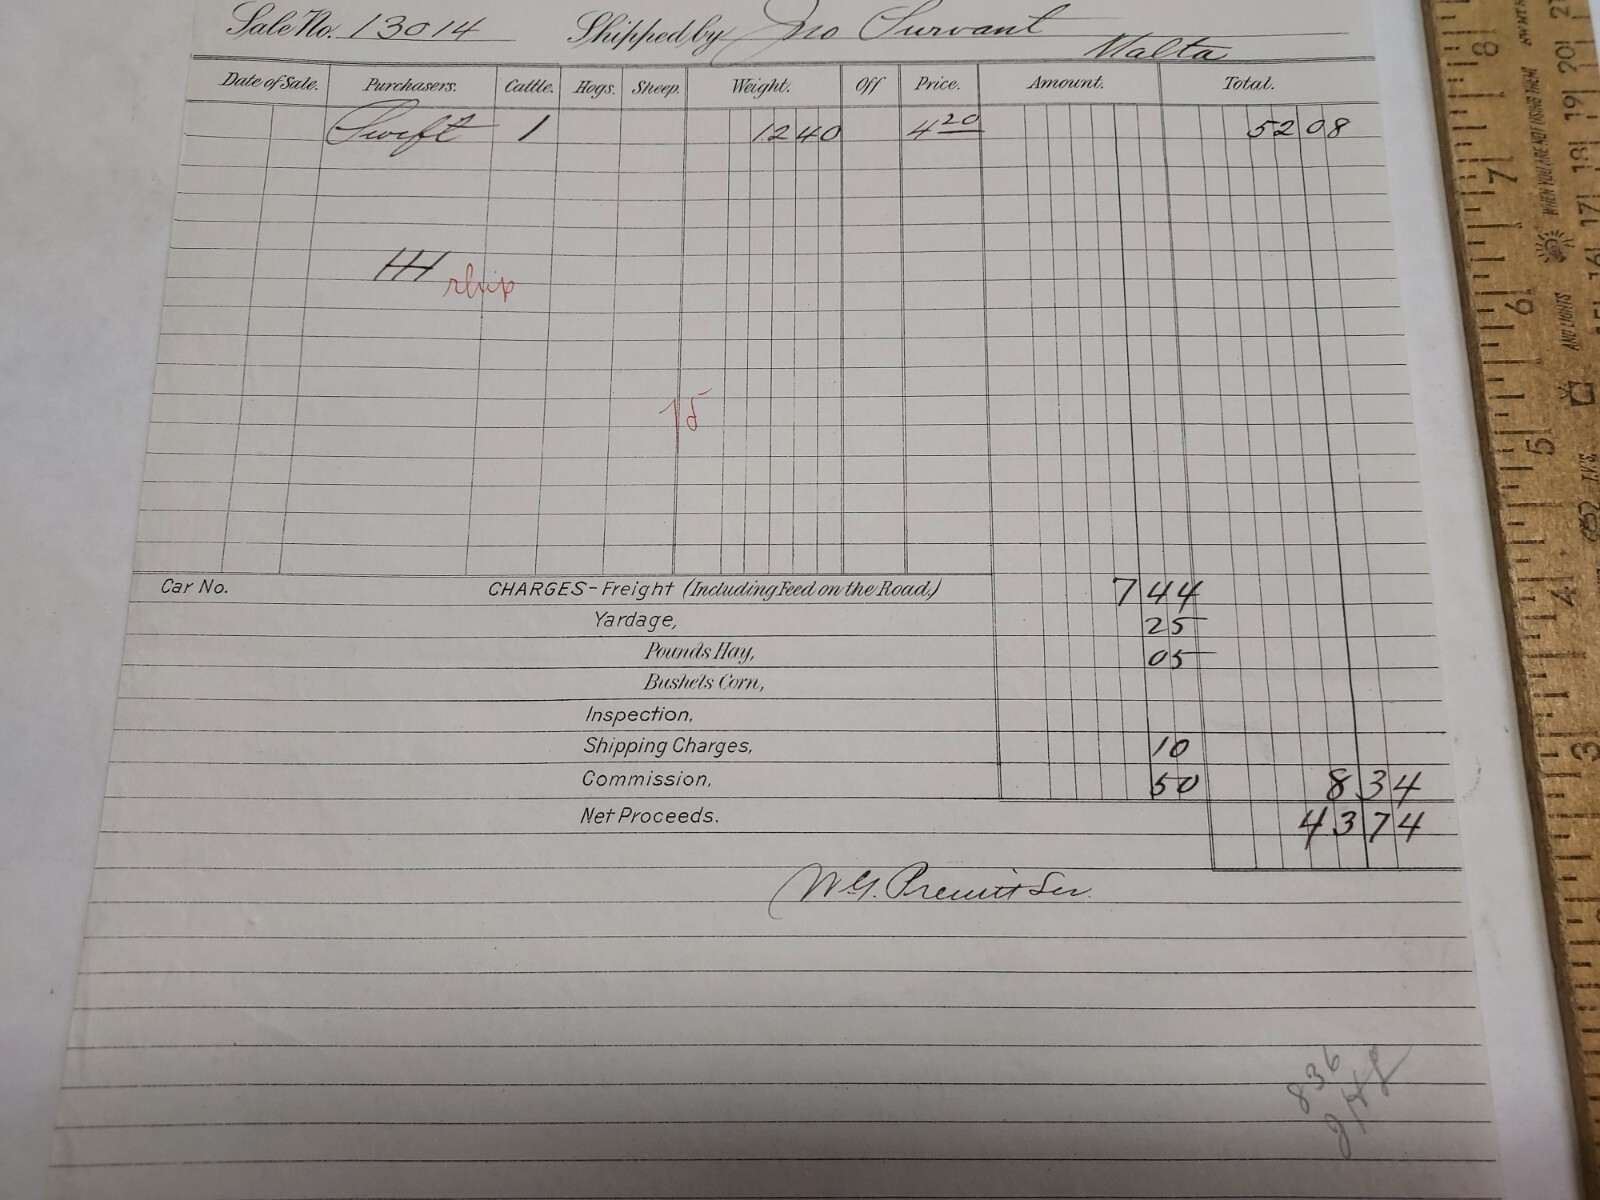 Sale No. 13014 Shipped by Jno Survant
Malta
Date of Sale. Purchasers. Cattle. Hogs. Sheep. Weight. Off Price. Amount. Total.
Swift 1 1240 4 20 52 08
HH
ship
15
Car No. CHARGES - Freight (Including Feed on the Road,) 7 44
Yardage, 25
Pounds Hay, 05
Bushels Corn,
Inspection,
Shipping Charges, 10
Commission, 50 8 34
Net Proceeds. 43 74
W.G. Prewitt Ser.
836
8
7
6
5
4
3
21
20
19
18
17
16
15
WHEN YOU ARE NOT USING THEM
AND LIGHTS